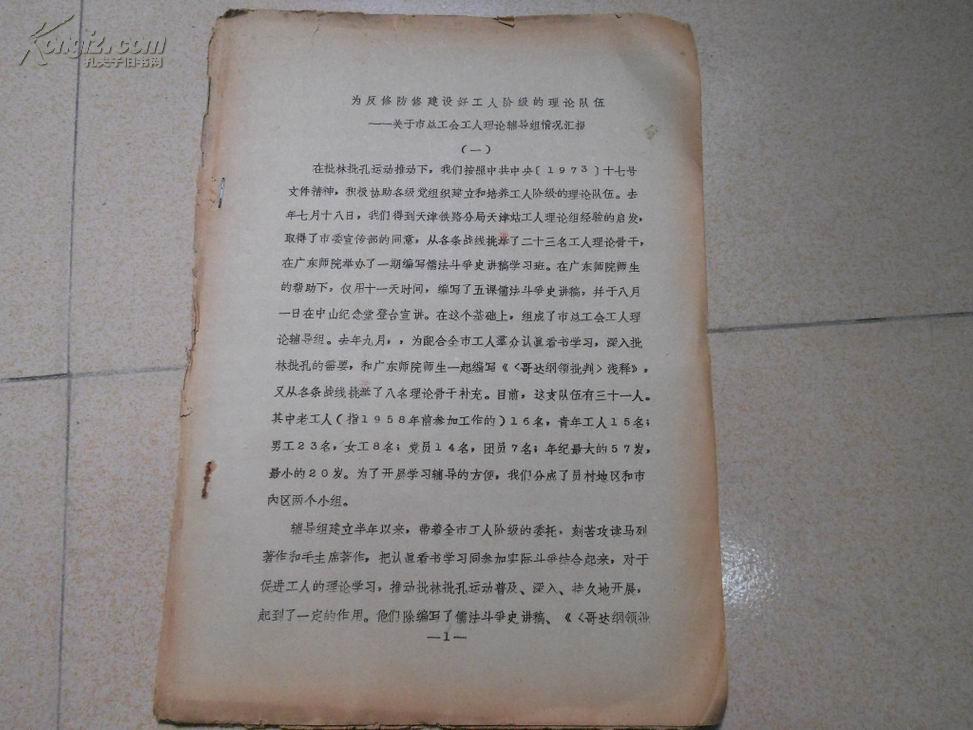 Kongfz.com
孔夫子旧书网
为反修防修建设好工人阶级的理论队伍
——关于市总工会工人理论辅导组情况汇报
（一）
在批林批孔运动推动下，我们按照中共中央〔1973〕十七号
文件精神，积极协助各级党组织建立和培养工人阶级的理论队伍。去
年七月十八日，我们得到天津铁路分局天津站工人理论组经验的启发，
取得了市委宣传部的同意，从各条战线挑举了二十三名工人理论骨干，
在广东师院举办了一期编写儒法斗争史讲稿学习班。在广东师院师生
的帮助下，仅用十一天时间，编写了五课儒法斗争史讲稿，并于八月
一日在中山纪念堂登台宣讲。在这个基础上，组成了市总工会工人理
论辅导组。去年九月，，为配合全市工人羣众认真看书学习，深入批
林批孔的需要，和广东师院师生一起编写《〈哥达纲领批判〉浅释》，
又从各条战线挑举了八名理论骨干补充。目前，这支队伍有三十一人。
其中老工人（指1958年前参加工作的）16名，青年工人15名；
男工23名，女工8名；党员14名，团员7名；年纪最大的57岁，
最小的20岁。为了开展学习辅导的方便，我们分成了员村地区和市
内区两个小组。
辅导组建立半年以来，带着全市工人阶级的委托，刻苦攻读马列
著作和毛主席著作，把认真看书学习同参加实际斗争结合起来，对于
促进工人的理论学习，推动批林批孔运动普及、深入、持久地开展，
起到了一定的作用。他们除编写了儒法斗争史讲稿、《〈哥达纲领批
—1—